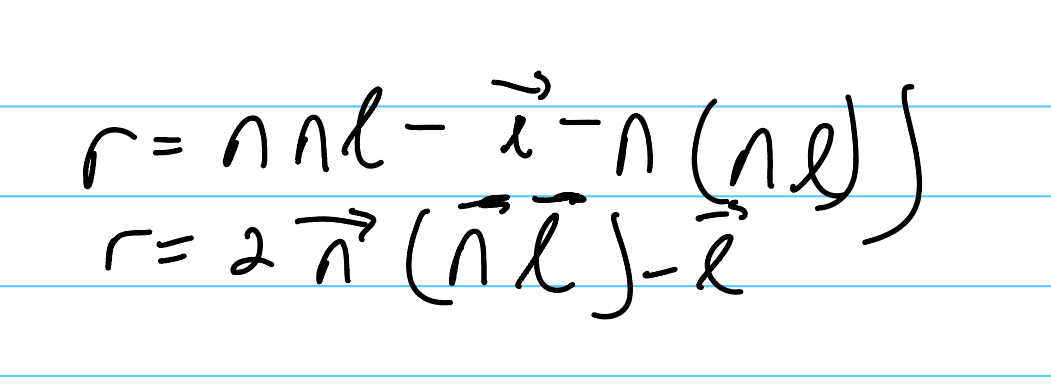 r = n n l - \vec{i} - n (n l) )
r = 2 \vec{n} (\vec{n} \vec{l}) - \vec{e}